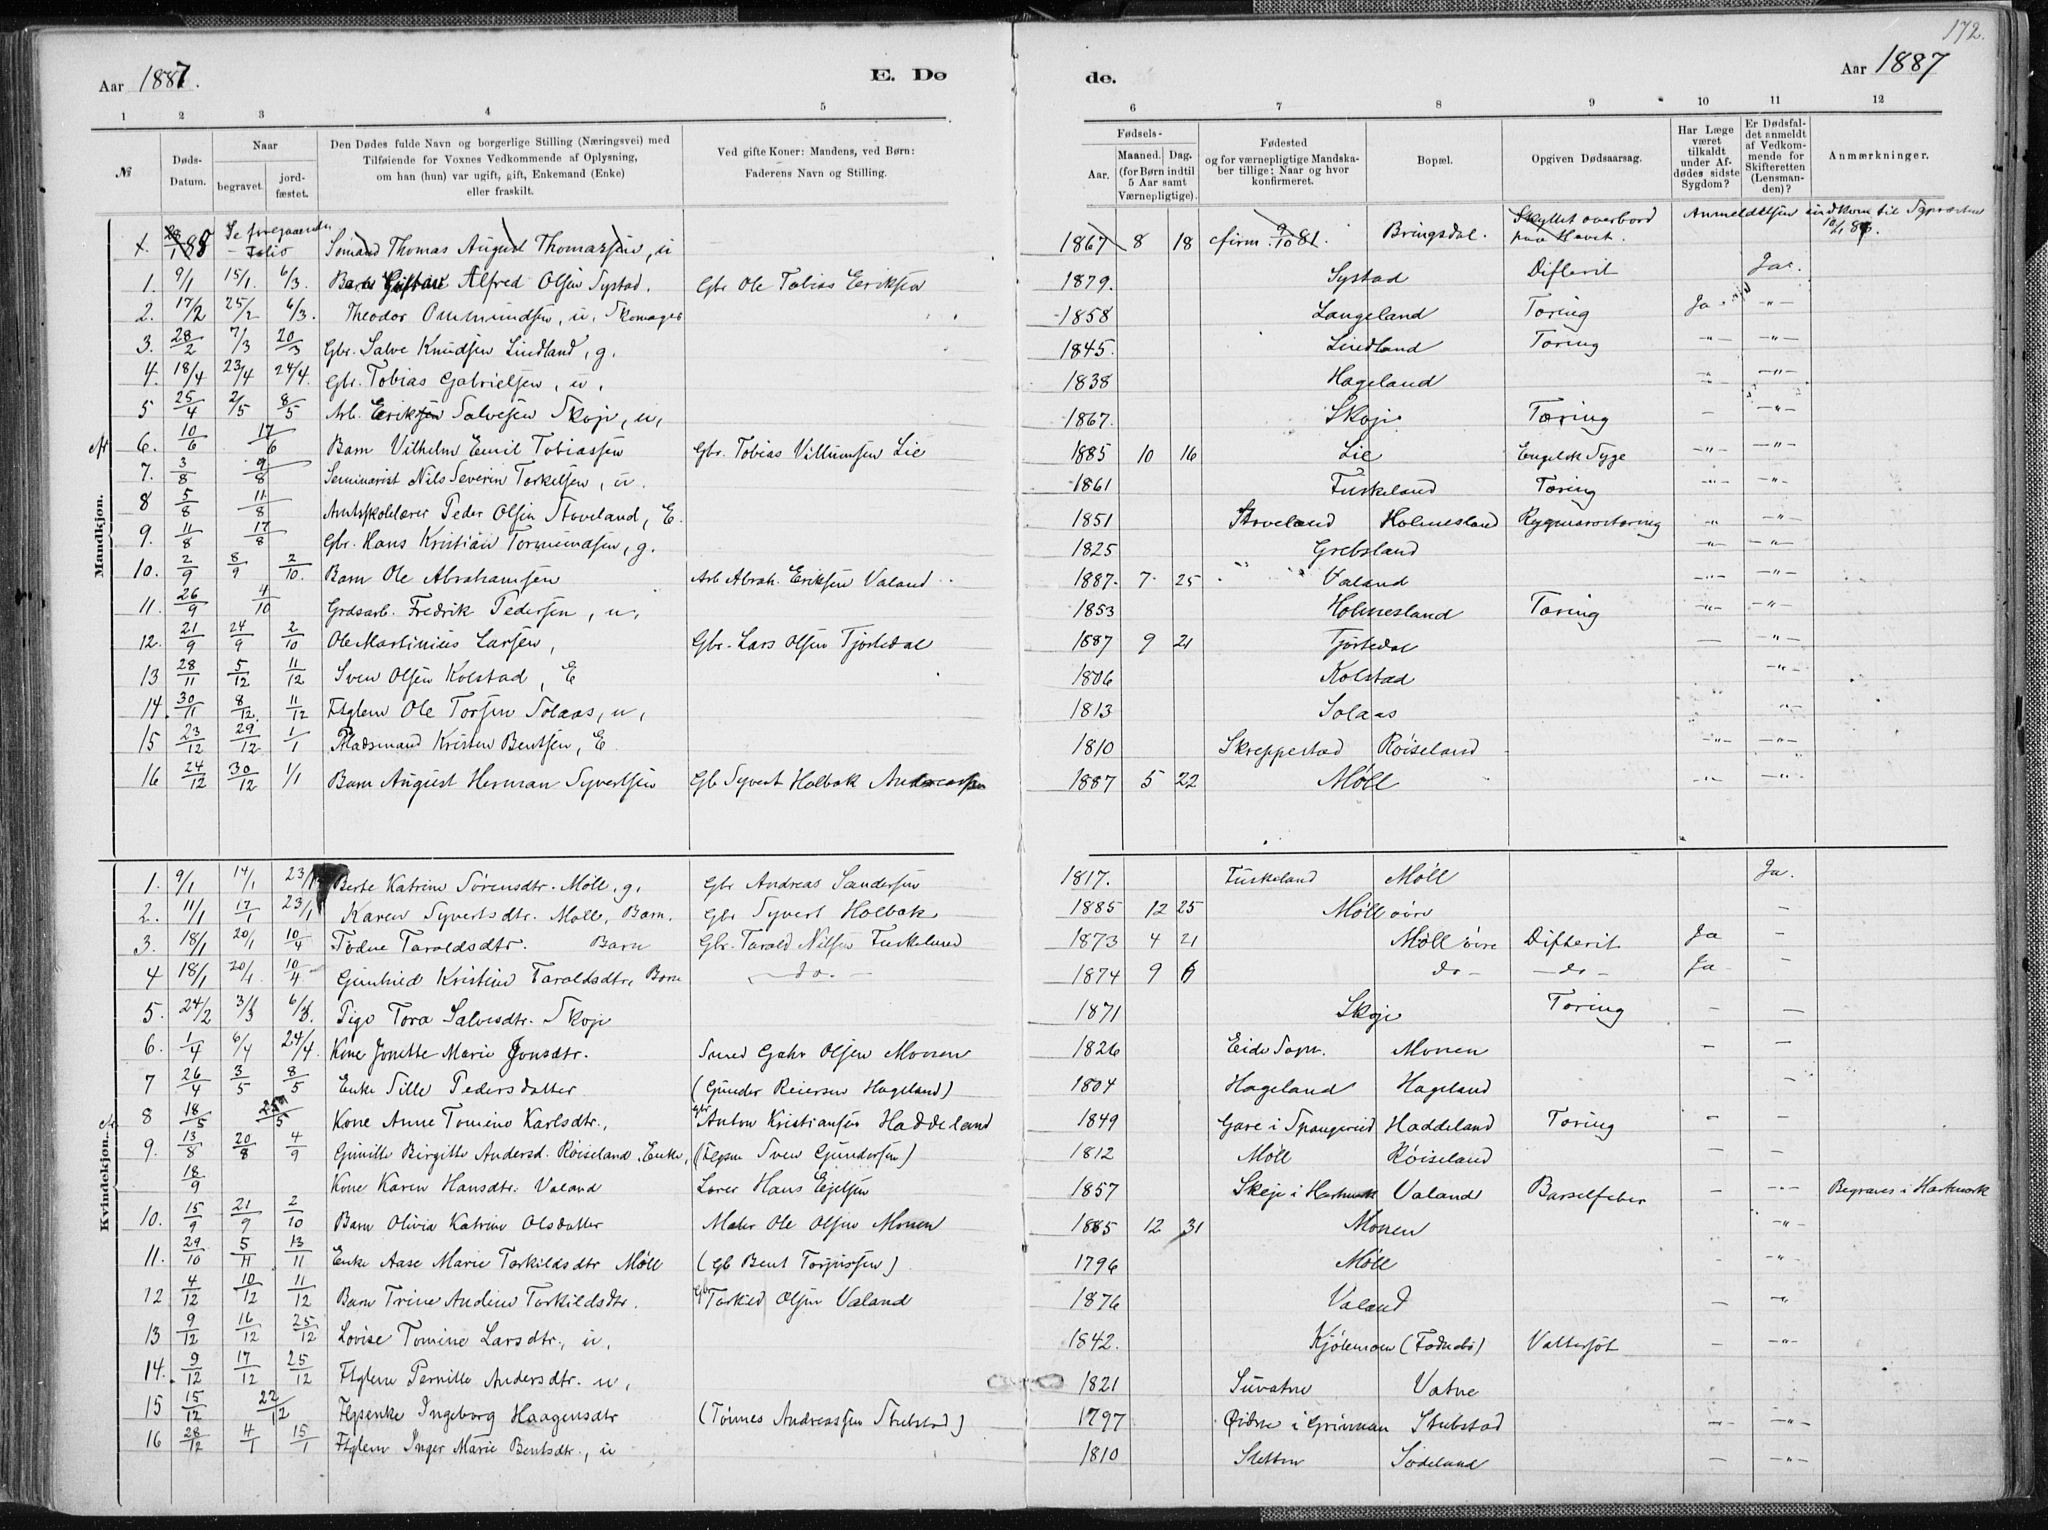 172.
Aar 1887. E. Dø de. Aar 1887
1 2 3 4 5 6 7 8 9 10 11 12
№ Døds-Datum. Naar begravet. jordfæstet. Den Dødes fulde Navn og borgerlige Stilling (Næringsvei) med Tilføiende for Voxnes Vedkommende af Oplysning, om han (hun) var ugift, gift, Enkemand (Enke) eller fraskilt. Ved gifte Koner: Mandens, ved Børn: Faderens Navn og Stilling. Fødsels- Aar. Maaned. Dag. (for Børn indtil 5 Aar samt Værnepligtige). Fødested og for værnepligtige Mandskaber tillige: Naar og hvor konfirmeret. Bopæl. Opgiven Dødsaarsag. Har Læge været tilkaldt under Afdødes sidste Sygdom? Er Dødsfaldet anmeldt af Vedkommende for Skifteretten (Lensmanden)? Anmærkninger.
Mandkjøn.
Se foregaaende Folio Sømand Thomas August Thomassen, u 1867 8 18 cfirm 9/10 81. Bringsdal. Skyllet overbord paa Havet. Anmeldelsen indkom til Sognepresten
1. 9/1 15/1. 6/3. Barn Gustav Alfred Olsen Systad. Gbr Ole Tobias Eriksen 1879. Systad Difterit Ja.
2. 17/2 25/2 6/3. Theodor Ommundsen, u. Skomager 1858 Langeland Tæring Ja -"-
3. 28/2 7/3 20/3 Gbr. Salve Knudsen Lindland, g. 1845. Lindland Tæring -"- -"-
4. 18/4 23/4 24/4. Gbr. Tobias Gabrielsen, u. 1838 Hageland -"- -"-
5 25/4 2/5 8/5 Arb. Eriksen Salvesen Skoje, u, 1867. Skoje Tæring - -"-
6. 10/6 17/6 Barn Vilhelm Emil Tobiassen Gbr. Tobias Villumsen Lie 1885 10 16 Lie Engelsk Syge -"- -"-
7. 3/8 9/8 Seminarist Nils Severin Torkelsen, u. 1861 Fuskeland Tæring -"- -"-
8 5/8 11/8 Amtsskolelærer Peder Olsen Stoveland, E. 1851 Stoveland Holmesland Rygmarvstæring -"- -"-
9. 11/8 17/8 Gbr. Hans Kristian Tormundsen, g. 1825 Grebsland -"- -"-
10. 2/9 8/9 2/10. Barn Ole Abrahamsen Arb Abrah. Eriksen Valand 1887. 7. 25 Valand -"- -"-
11. 26/9 4/10 Grdsarb. Fredrik Pedersen, u, 1853 Holmesland Tæring -"- -"-
12. 21/9 24/9 2/10 Ole Martinius Larsen, Gbr. Lars Olsen Tjortedal 1887 9 21 Tjortedal - -"-
13 28/11 5/12 11/12 Sven Olsen Kolstad, E 1806 Kolstad -"-
14. 30/11 8/12. 11/12 Ftglem Ole Torsen Solaas, u, 1813 Solaas -"-
15 23/12 29/12 1/1 Pladsmand Kristen Bentsen, E. 1810 Skreppestad Røiseland -"- -"-
16 24/12 30/12 1/1 Barn August Herman Syvertsen Gb Syvert Holbæk Andreassen 1887 5 22 Møll -"- -"-
Kvindekjøn.
1. 9/1 14/1 23/1 Berte Katrine Sørensdtr. Møll, g, Gbr Andreas Sandersen 1817. Fuskeland Møll Ja.
2. 11/1 17/1 23/1 Karen Syvertsdtr. Møll, Barn. Gbr Syvert Holbæk 1885 12 25 Møll øvre -
3. 18/1 20/1 10/4 Tødne Taraldsdtr. Barn Gbr. Tarald Nilsen Fuskeland 1873 4 21 Møll øvre Difterit Ja -
4 18/1 20/1. 10/4 Gunhild Kristine Taraldsdtr, Barn -do.- 1874 9 6 do- -do- Ja -
5. 24/2 3/3 6/3. Pige Tora Salvesdtr. Skoje 1871 Skoje Tæring - -
6. 1/4 6/4 24/4. Kone Jonette Marie Jonsdtr. Smed Gabr Olsen Monen 1826 Eide Sogn. Monen - -
7 26/4 3/5 8/5 Enke Sille Pedersdatter (Gunder Reiersen Hageland) 1804 Hageland Hageland -
8 18/5 Kone Anne Tomine Karlsdtr., Gbr Anton Kristiansen Haddeland 1849 Gare i Spangereid Haddeland Tæring - -
9. 13/8 20/8 4/9 Gunille Birgitte Andersd. Røiseland. Enke, (Sven Gundersen) 1812 Møll Røiseland - -
18/9 Kone Karen Hansdtr. Valand Lærer Hans Ejelsen 1857 Skeje i Hartmark Valand Barselfeber - -"- Begraves i Hartmark
10. 15/9 21/9 2/10 Barn Olivia Katrine Olsdatter Ole Olsen Monen 1885 12 31 Monen -"-
11. 29/10 5/11 13/11 Enke Aase Marie Torkildsdtr Møll (Gb Bent Torjussen) 1796 Møll -"-
12 4/12 10/12 11/12 Barn Trine Andine Torkildsdtr. Gbr Torkild Olsen Valand 1876 Valand - -"-
13 9/12 16/12 25/12 Lovise Tomine Larsdtr., u, 1842. Kjølemoen Vattersot - -"-
14. 9/12 17/12 25/12 Ftglem Pernille Andersdtr. u, 1821 Suvatne Vatne - -"-
15 15/12 22/12 Ingeborg Haagensdtr (Tønnes Andreassen Stubstad) 1797 Øidne i Grinmen Stubstad -"- -"-
16 28/12 4/1 15/1 Ftglem Inger Marie Bentsdtr., u 1810 Sletten Sødeland - -"-